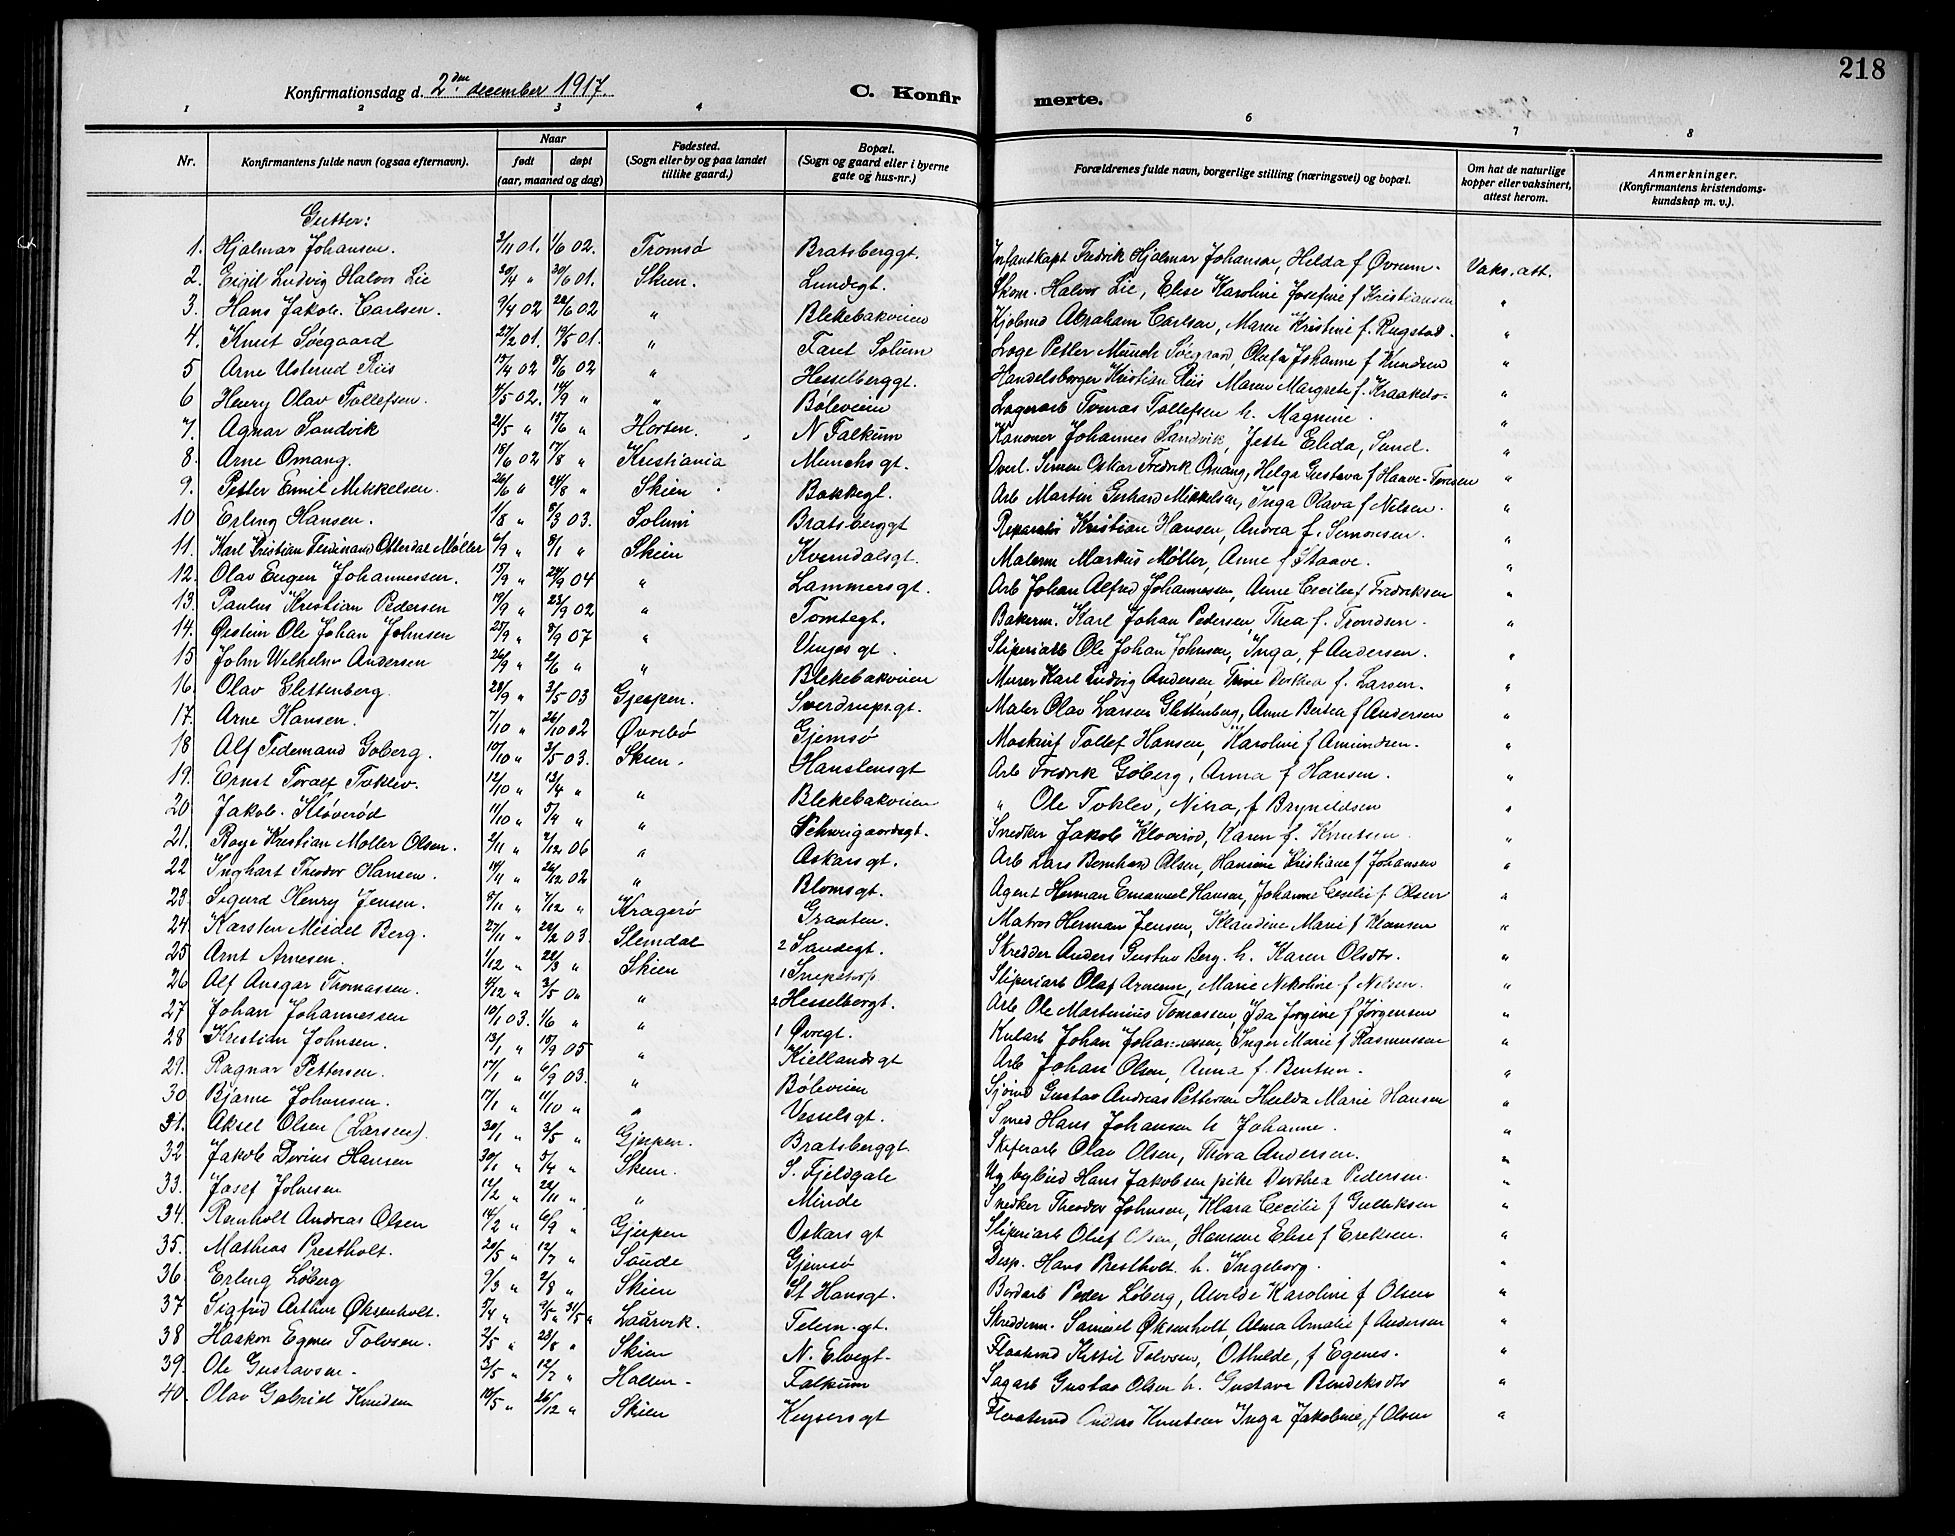 218
Konfirmationsdag d. 2den december 1917.
C. Konfirmerte.
1 2 3 4 6 7 8
Nr. Konfirmantens fulde navn (ogsaa efternavn). Naar født døpt (aar, maaned og dag) Fødested. (Sogn eller by og paa landet tillike gaard.) Bopæl. (Sogn og gaard eller i byerne gate og hus-nr.) Forældrenes fulde navn, borgerlige stilling (næringsvei) og bopæl. Om hat de naturlige kopper eller vaksinert, attest herom. Anmerkninger. (Konfirmantens kristendomskundskap m. v.).
Gutter:
1. Hjalmar Johansen. 3/11 01. 1/6 02. Tromsø Bratsberggt. Infantkapt Fredrik Hjalmar Johansen, Hilda f Øvrum. Vaks. att.
2. Eigil Ludvig Halvor Lie 20/4 " 30/6 01. Skien. Lundegt. Skom. Halvor Lie, Elise Karoline Josefine f Kristiansen "
3. Hans Jakob Carlsen. 9/4 02 22/6 02 " Blekebakveien Kjøbmd Abraham Carlsen, Maren Kristine f. Rugstad. "
4. Knut Søegaard 27/2 01. 19/5 01. " Faret Solum Loge Petter Münch Søegaard, Olufa Johanne f Knudsen "
5 Arne Usterud Riis 15/4 02 8/6 02 " Hesselberggt. Handelsborger Kristian Riis Maren Margrete f. Kraaketo. "
6 Henry Olav Tollefsen. 4/5 02. 14/9 " " Bøleveien Lagerarb Tomas Tollefsen h. Magnine. "
7. Agnar Sandvik 21/5 " 15/6 " Horten. N Falkum Kanoner Johannes Sandvik, Jette Elida, Sund. "
8. Arne Omang. 18/6 02 17/8 " Kristiania Munchs gt. Overl. Simon Oskar Fredrik Omang, Helga Gustava f Haave-Toresen "
9. Petter Emil Mikkelsen. 26/6 " 24/8 " Skien Bakkegt. Arb Martin Gerhard Mikkelsen, Inga Olava f Nilsen. "
10 Erling Hansen. 1/8 " 8/3 03. Solum Bratsberggt Reparatør Kristian Hansen, Andrea f. Simonsen. "
11. Karl Kristian Ferdinand Otterdal Møller 6/9 " 8/1 " Skien Kverndalsgt. Malerm Markus Møller, Anne f Staave. "
12. Olav Eugen Johannessen. 15/9 " 24/9 04 " Lammersgt. Arb Johan Alfred Johannessen, Anne Cecilie f Fredriksen "
13. Paulus Kristian Pedersen 19/9 " 23/9 02 " Tomtegt. Bakerm. Karl Johan Pedersen Thea f. Trondsen. "
14. Øistein Ole Johan Johnsen 25/9 " 8/9 07 " Vinjes gt. Sliperiarb Ole Johan Johnsen, Inga, f Andersen. "
15 John Wilhelm Andersen 26/9 " 2/6 " " Blekebakveien Murer Karl Ludvig Andersen, Trine Dorthea f. Larsen. "
16. Olav Glittenberg. 28/9 " 3/5 03 Gjerpen. Sverdrupsgt. Maler Olav Larsen Glittenberg, Anne Bertea f Andersen "
17. Arne Hansen. 7/10 " 26/10 02 Øvrebø Gjemsø Maskinf Tollef Hansen, Karoline f Amundsen. "
18 Alf Tidemand Goberg. 10/10 " 3/5 03. Skien. Hanstensgt Arb Fredrik Goberg, Anna f Hansen. "
19. Ernst Toralf Toklev. 12/10 " 13/4 " " Blekebakveien " Ole Toklev, Nina, f Brynildsen "
20 Jakob Kløverød 11/10 " 5/4 " " Schweigaardsgt. Snedker Jakob Kløverød, Karen f. Knutsen. "
21. Roye Kristian Møller Olsen. 2/11 " 2/12 06 " Oskarsgt. Arb Lars Bernhard Olsen, Hansine Kristiane f Johansen "
22 Inghart Theodor Hansen. 14/11 " 26/12 02 " Blomsgt. Agent Herman Emanuel Hansen, Johanne Cecilie f Olsen "
23. Sigurd Henry Jensen. 8/11 " 7/12 " Kragerø Graaten. Matros Herman Jensen, Klaudine Marie f Klausen "
24. Karsten Meidel Berg. 27/11 " 22/2 03. Slemdal 2 Sandegt. Skredder Anders Gustav Berg. h. Karen Olsdtr. "
25 Arnt Arnesen. 1/12 " 22/3 " Skien 1 Snipetorp Sliperiarb Olaf Arnesen, Marie Nikoline f Nilsen. "
26 Alf Ansgar Thomassen. 4/12 " 3/5 " " 2 Hesselbergt. Arb Ole Martinius Tomassen, Ida Jorgine f Jørgensen "
27 Johan Johannessen 10/1 03. 1/6 " " 1 Øvregt. Kularb Johan Johannessen, Inger Marie f Rasmussen "
28 Kristian Johnsen. 13/1 " 10/9 05 " Kiellandsgt Arb Johan Olsen, Anna f. Bentsen. "
29. Ragnar Pettersen. 17/1 " 6/9 03. " Bøleveien Sjømd Gustav Andreas Pettersen Hulda Marie Hansen "
30. Bjarne Johansen. 17/1 " 11/10 " " Vesselsgt. Smed Hans Johansen h Johanne. "
31. Aksel Olsen (Larsen). 30/1 " 3/5 " Gjerpen. Bratsberggt Skiferarb Olav Olsen, Thora Andersen. "
32 Jakob Dorius Hansen 30/1 " 5/4 " Skien. S. Fjeldgate Ug bybud Hans Jakobsen pike Dorthea Pedersen. "
33. Josef Johnsen 12/2 " 22/11 " " Minde Snedker Theodor Johnsen, Klara Cecilie f Gulleksen "
34. Reinholt Andreas Olsen 14/2 " 6/9 " Gjerpen Oskars gt Sliperiarb Oluf Olsen, Hansine Elise f Eriksen. "
35. Mathias Prestholt. 20/5 " 12/7 " Saude Gjemsø Disp. Hans Prestholt h. Ingeborg. "
36. Erling Løberg 9/3 " 2/8 " Skien St Hansgt. Bordarb Peder Løberg, Alvilde Karoline f Olsen "
37 Sigfrid Arthur Øksenholt. 5/4 " 2/5 " 31/5 " Laurvik. Telem. gt. Skredderm. Samuel Øksenholt, Alma Amalie f Andersen "
38 Haakon Egnes Tolvsen. 2/5 " 23/8 " Skien N. Elvegt. Fløtermd Kittil Tolvsen, Othilde, f Egenes. "
39. Ole Gustavsen. 3/5 " 12/7 " Hallen. Falkum Sagarb Gustav Olsen h. Gustava Bendiksdtr "
40. Olav Gabriel Knudsen 10/5 " 26/12 " Skien Keysersgt Fløtermd Anders Knutsen Inga Jakobine, f Olsen "